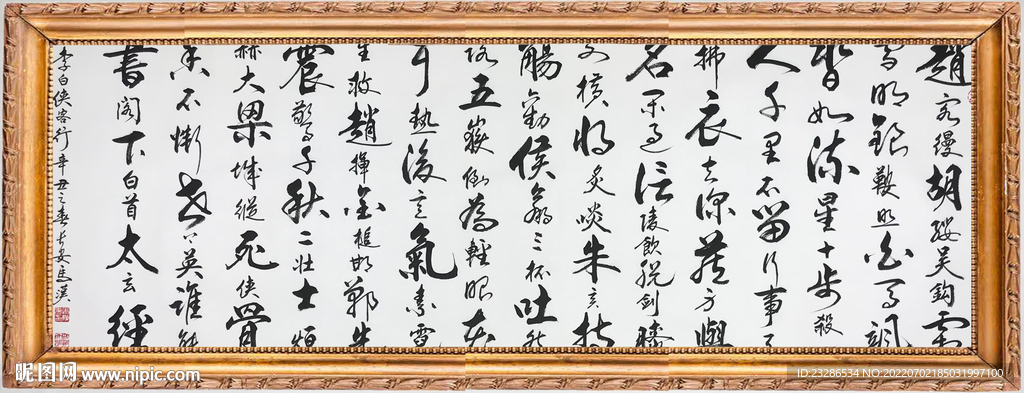 趙客縵胡纓吳鉤霜
雪明銀鞍照白馬颯
沓如流星十步殺
人千里不留行事了
拂衣去深藏身與
名閑過信陵飲脫劍膝
前橫將炙啖朱亥持
觴勸侯嬴三杯吐然
諾五嶽倒為輕眼花
耳熱後意氣素霓
生救趙揮金槌邯鄲先
震驚千秋二壯士烜
赫大梁城縱死俠骨
香不慚世上英誰能
書閣下白首太玄經
李白俠客行辛丑之春長安馬漢
昵图网 www.nipic.com
ID:23286534 NO:20220702185031997100